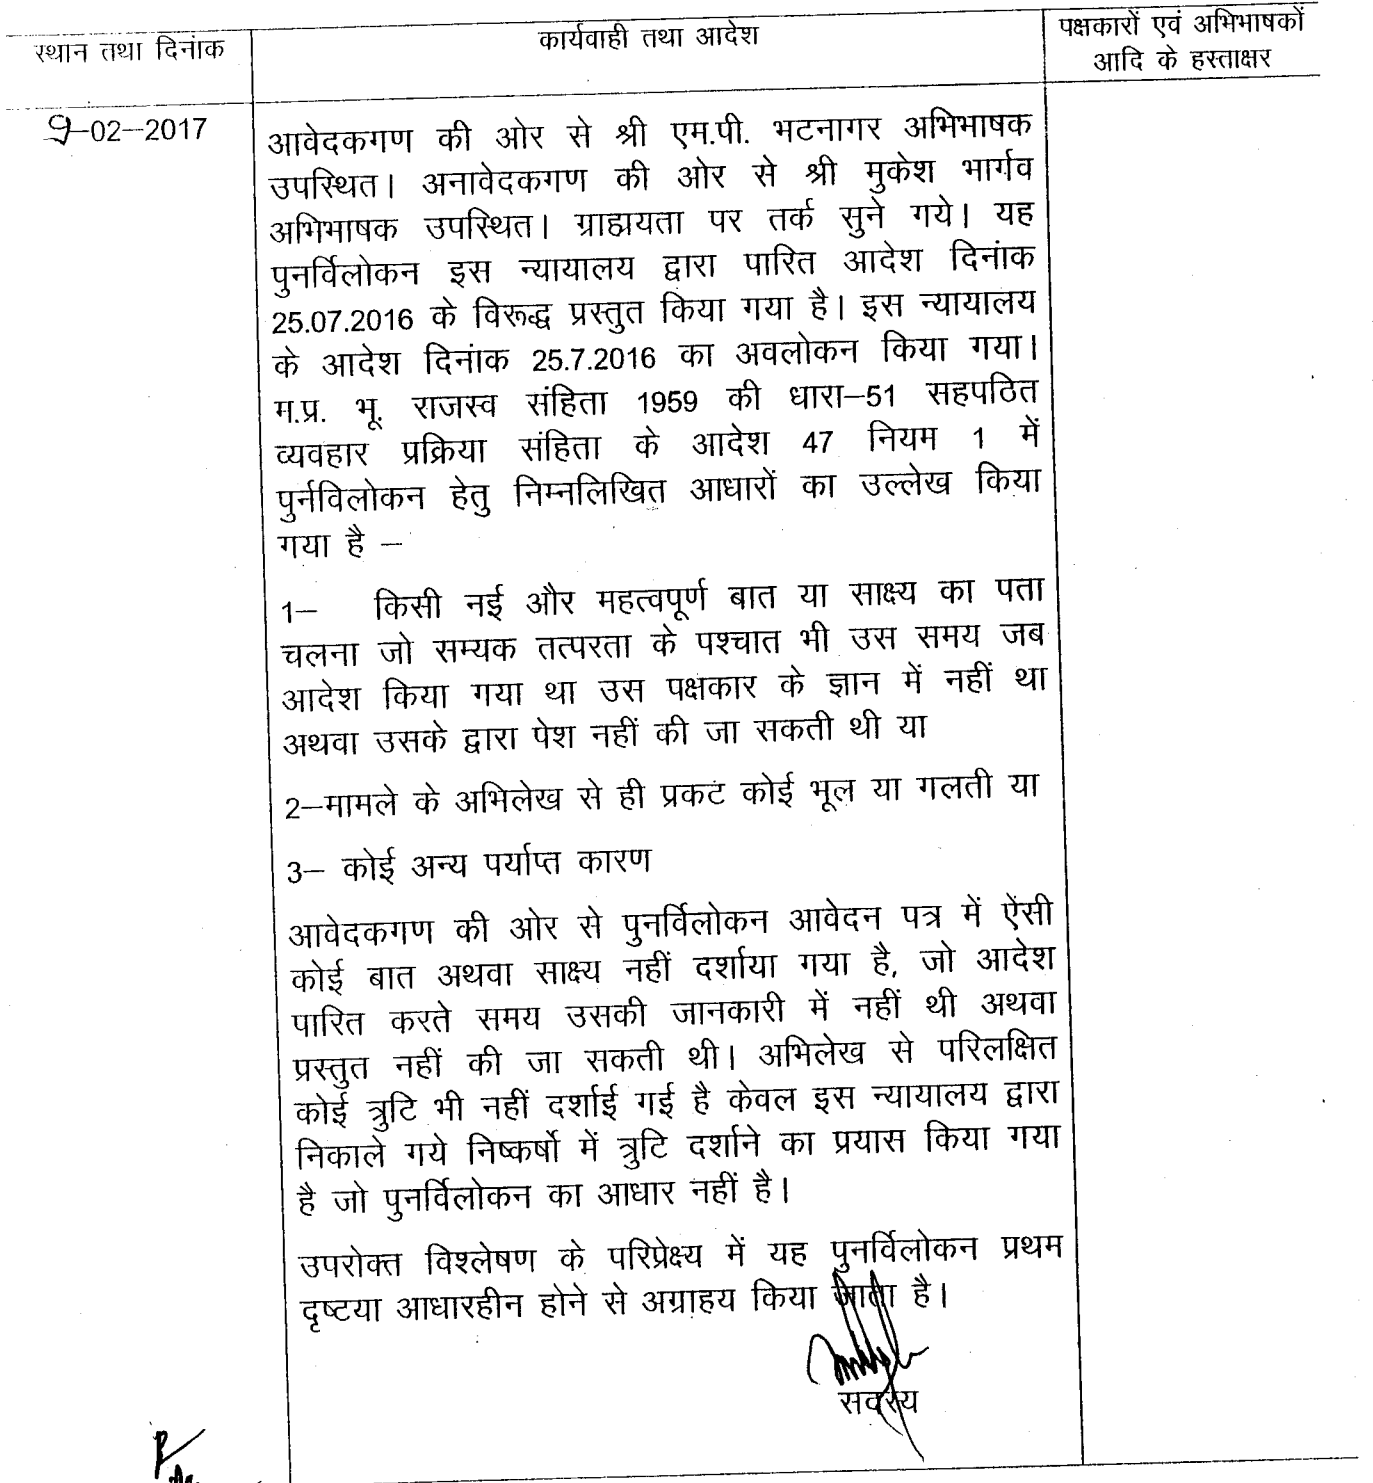 स्थान तथा दिनांक
कार्यवाही तथा आदेश
पक्षकारों एवं अभिभाषकों
आदि के हस्ताक्षर
9-02-2017
आवेदकगण की ओर से श्री एम.पी. भटनागर अभिभाषक
उपस्थित। अनावेदकगण की ओर से श्री मुकेश भार्गव
अभिभाषक उपस्थित। ग्राह्ययता पर तर्क सुने गये। यह
पुनर्विलोकन इस न्यायालय द्वारा पारित आदेश दिनांक
25.07.2016 के विरूद्ध प्रस्तुत किया गया है। इस न्यायालय
के आदेश दिनांक 25.7.2016 का अवलोकन किया गया।
म.प्र. भू. राजस्व संहिता 1959 की धारा–51 सहपठित
व्यवहार प्रक्रिया संहिता के आदेश 47 नियम 1 में
पुर्नविलोकन हेतु निम्नलिखित आधारों का उल्लेख किया
गया है –
1– किसी नई और महत्वपूर्ण बात या साक्ष्य का पता
चलना जो सम्यक तत्परता के पश्चात भी उस समय जब
आदेश किया गया था उस पक्षकार के ज्ञान में नहीं था
अथवा उसके द्वारा पेश नहीं की जा सकती थी या
2–मामले के अभिलेख से ही प्रकट कोई भूल या गलती या
3– कोई अन्य पर्याप्त कारण
आवेदकगण की ओर से पुनर्विलोकन आवेदन पत्र में ऐंसी
कोई बात अथवा साक्ष्य नहीं दर्शाया गया है, जो आदेश
पारित करते समय उसकी जानकारी में नहीं थी अथवा
प्रस्तुत नहीं की जा सकती थी। अभिलेख से परिलक्षित
कोई त्रुटि भी नहीं दर्शाई गई है केवल इस न्यायालय द्वारा
निकाले गये निष्कर्षो में त्रुटि दर्शाने का प्रयास किया गया
है जो पुनर्विलोकन का आधार नहीं है।
उपरोक्त विश्लेषण के परिप्रेक्ष्य में यह पुनर्विलोकन प्रथम
दृष्टया आधारहीन होने से अग्राहय किया जाता है।
सदस्य